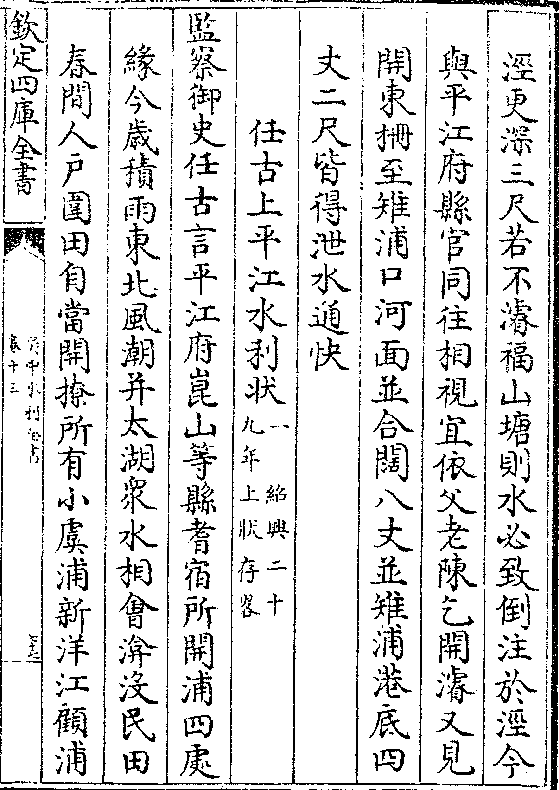 涇更深三尺若不濬福山塘則水必致倒注於涇今
與平江府縣官同往相視宜依父老陳乞開濬又見
開東柵至雉浦口河面並合闊八丈並雉浦港底四
丈二尺皆得泄水通快
任古上平江水利狀一 紹興二十
九年上狀存畧
監察御史任古言平江府崑山等縣耆宿所開浦四處
緣今歲積雨東北風潮并太湖衆水相會渰没民田
春間人戶圍田自當開撩所有小虞浦新洋江顧浦
欽定四庫全書
吳中水利全書
卷十三